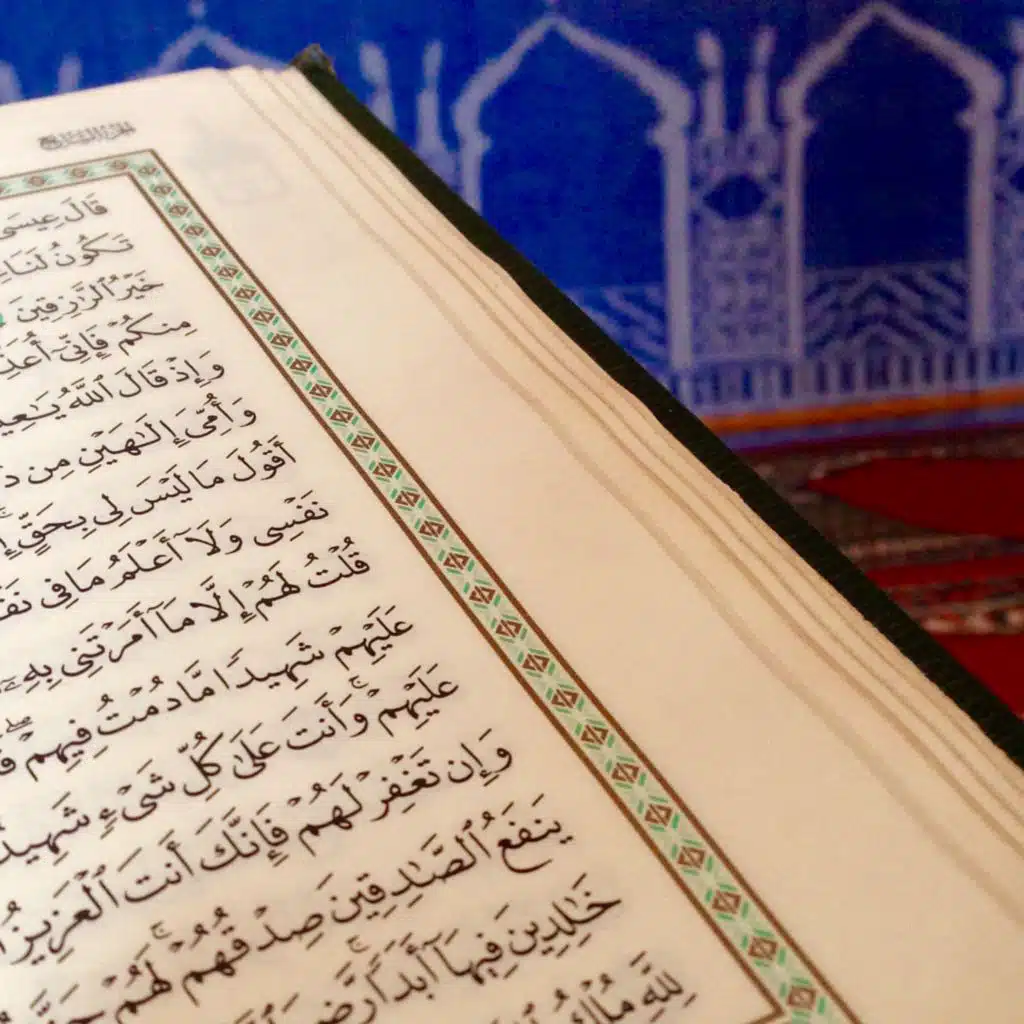 الجزء السابع
قَالَ عِيسَى
تَكُونُ لَنَا
خَيْرُ ٱلرَّٰزِقِينَ
مِنكُمْ فَإِنِّىٓ أُعَذِّ
وَإِذْ قَالَ ٱللَّهُ يَٰعِي
وَأُمِّىَ إِلَٰهَيْنِ مِن د
أَقُولَ مَا لَيْسَ لِى بِحَقٍّ ۚ إ
نَفْسِى وَلَآ أَعْلَمُ مَا فِى نَفْ
قُلْتُ لَهُمْ إِلَّا مَآ أَمَرْتَنِى بِهِۦٓ
عَلَيْهِمْ شَهِيدًا مَّا دُمْتُ فِيهِمْ ۖ فَ
عَلَيْهِمْ ۚ وَأَنتَ عَلَىٰ كُلِّ شَىْءٍ شَهِيدٌ
وَإِن تَغْفِرْ لَهُمْ فَإِنَّكَ أَنتَ ٱلْعَزِيزُ
يَنفَعُ ٱلصَّٰدِقِينَ صِدْقُهُمْ ۚ لَهُمْ جَنَّ
خَٰلِدِينَ فِيهَآ أَبَدًا ۚ رَّضِ
لِلَّهِ مُلْكُ